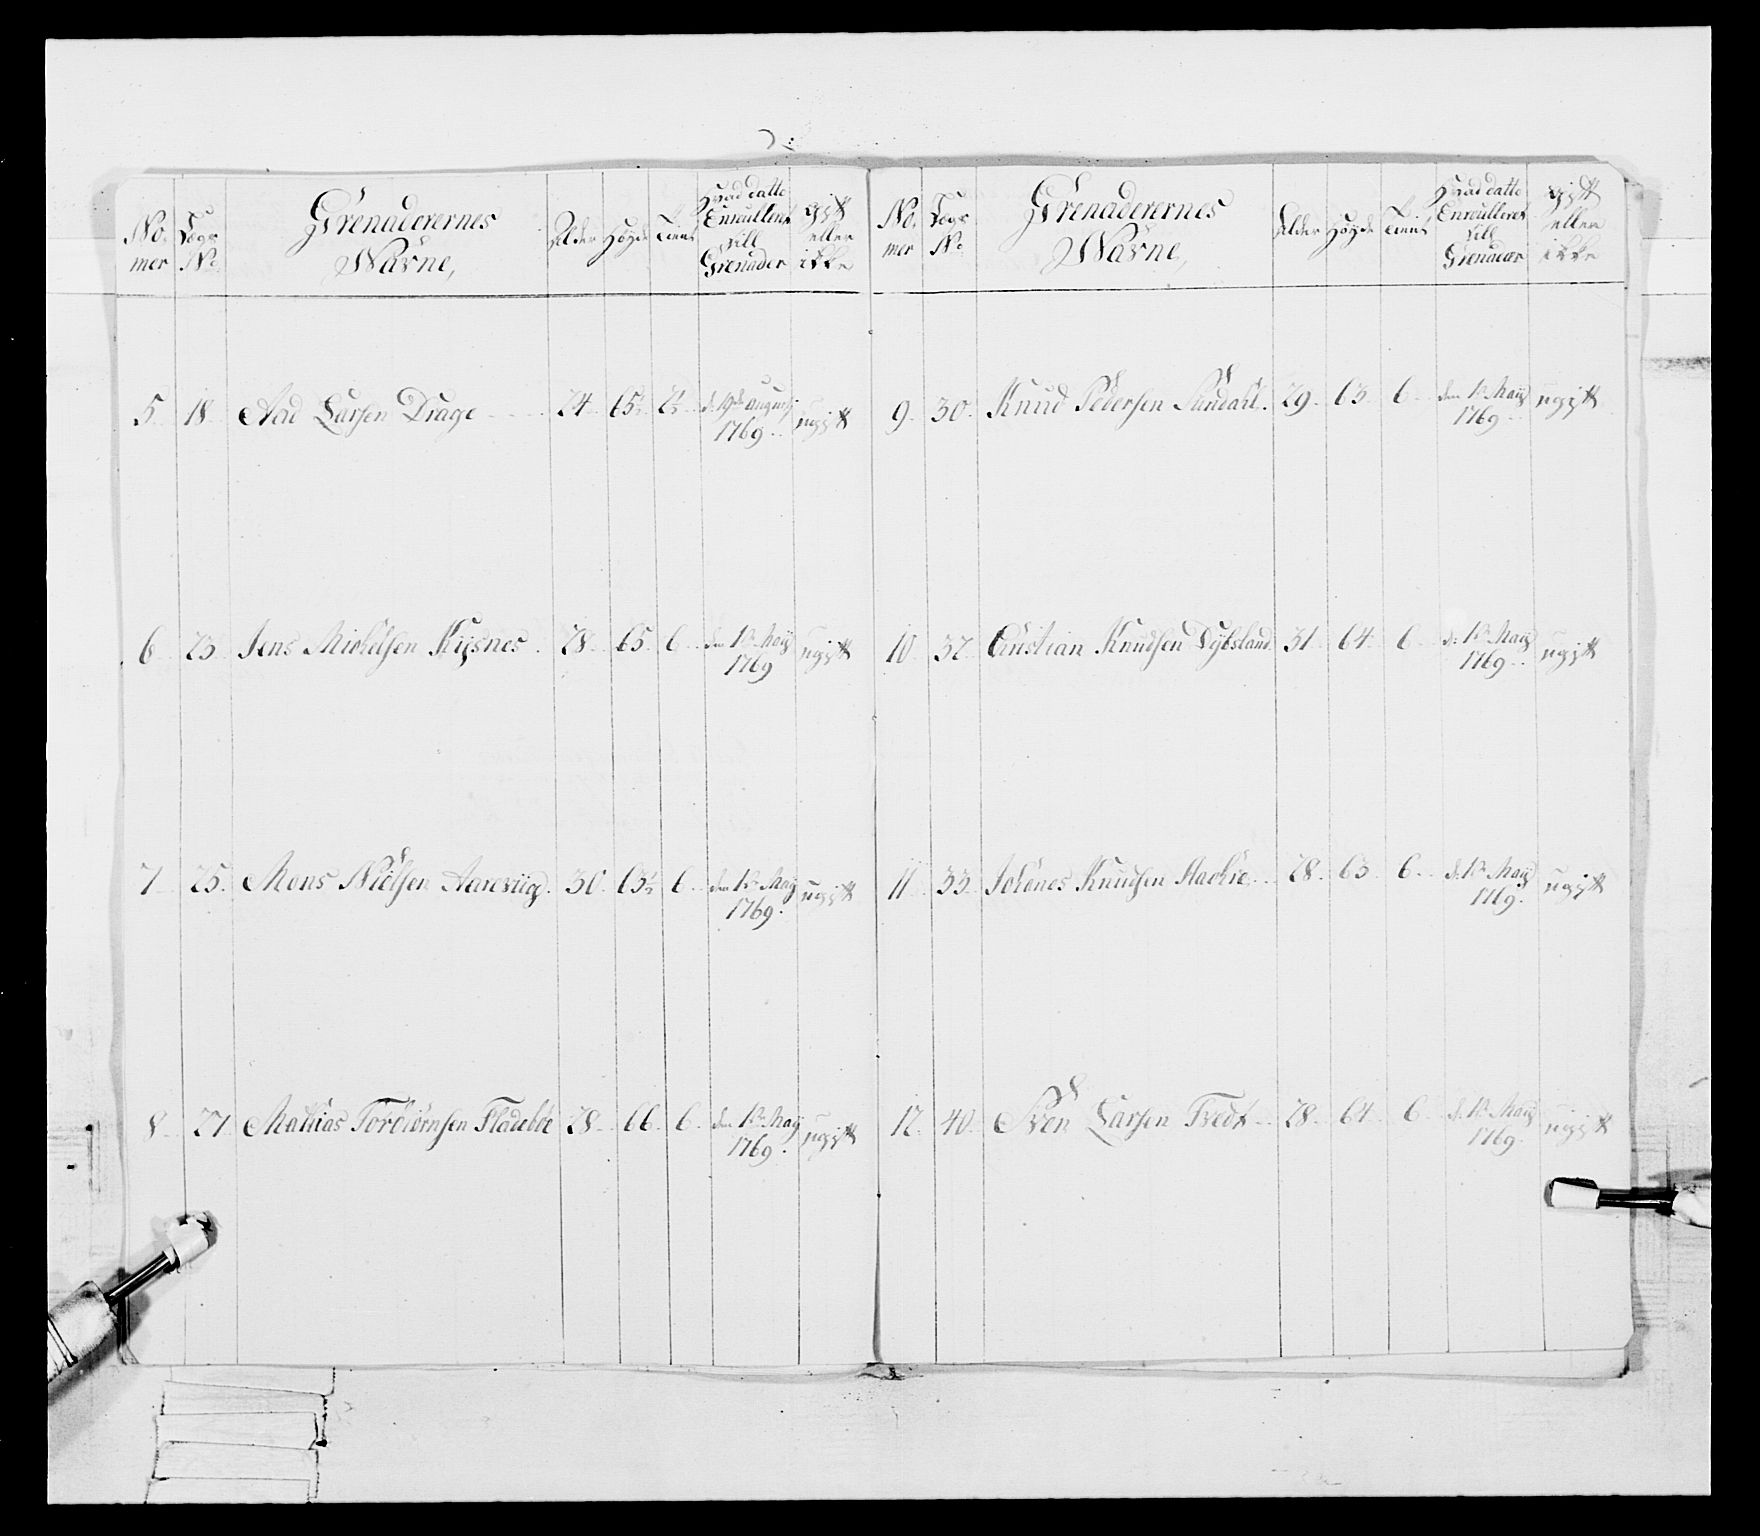 No. mer
Logs No.
Grenaderernes Navne,
Alder
Høyde
Tient
Hvad datto Enroulleret till Grenader
gift eller ikke
5. 18. Aad Larsen Drage 24. 65½ 2½ d: 19de augustj 1769. ugift
6. 23. Jens Michelsen Kysnes. 28. 65. 6. den 1te Maij 1769 ugift
7. 25. Mons Nielsen Aareviig. 30. 63½ 6. den 1te Maij 1769. ugift
8. 27. Mathias Torbiørnsen Fladebøe 28. 66. 6. den 1te Maij 1769. ugift
No. mer
Logs No.
Grenaderernes Navne,
Alder
Høyde
Tient
Hvad datto Enroulleret till Grenadeer
gift eller ikke
9. 30. Knud Pedersen Sundahl. 29. 63. 6. den 1te Maij 1769. ugift
10. 32. Christian Knudsen Dybsland. 31. 64. 6. d: 1te Maij 1769. ugift
11. 33. Johanes Knudsen 28. 63. 6. d. 1te Maij 1769. ugift
12. 40. Sven Larsen Tvedt 28. 64. 6. d. 1te Maij 1769. ugift